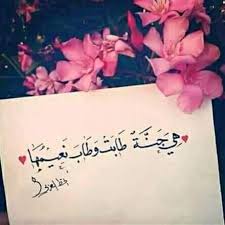 هِيَ جَنَّةٌ طَابَتْ وَطَابَ نَعِيمُهَا